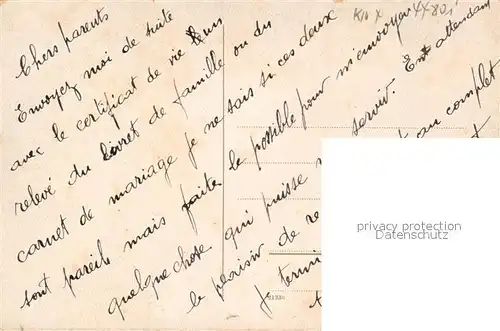 Chers parents
Envoyez moi de suite
avec le certificat de vie
relevé du livret de famille ou du
carnet de mariage je ne sais si ces deux
sont pareils mais faite le possible pour m'envoyer
quelque chose qui puisse servir. En attendant
le plaisir de
Je
au complet
privacy protection
Datenschutz